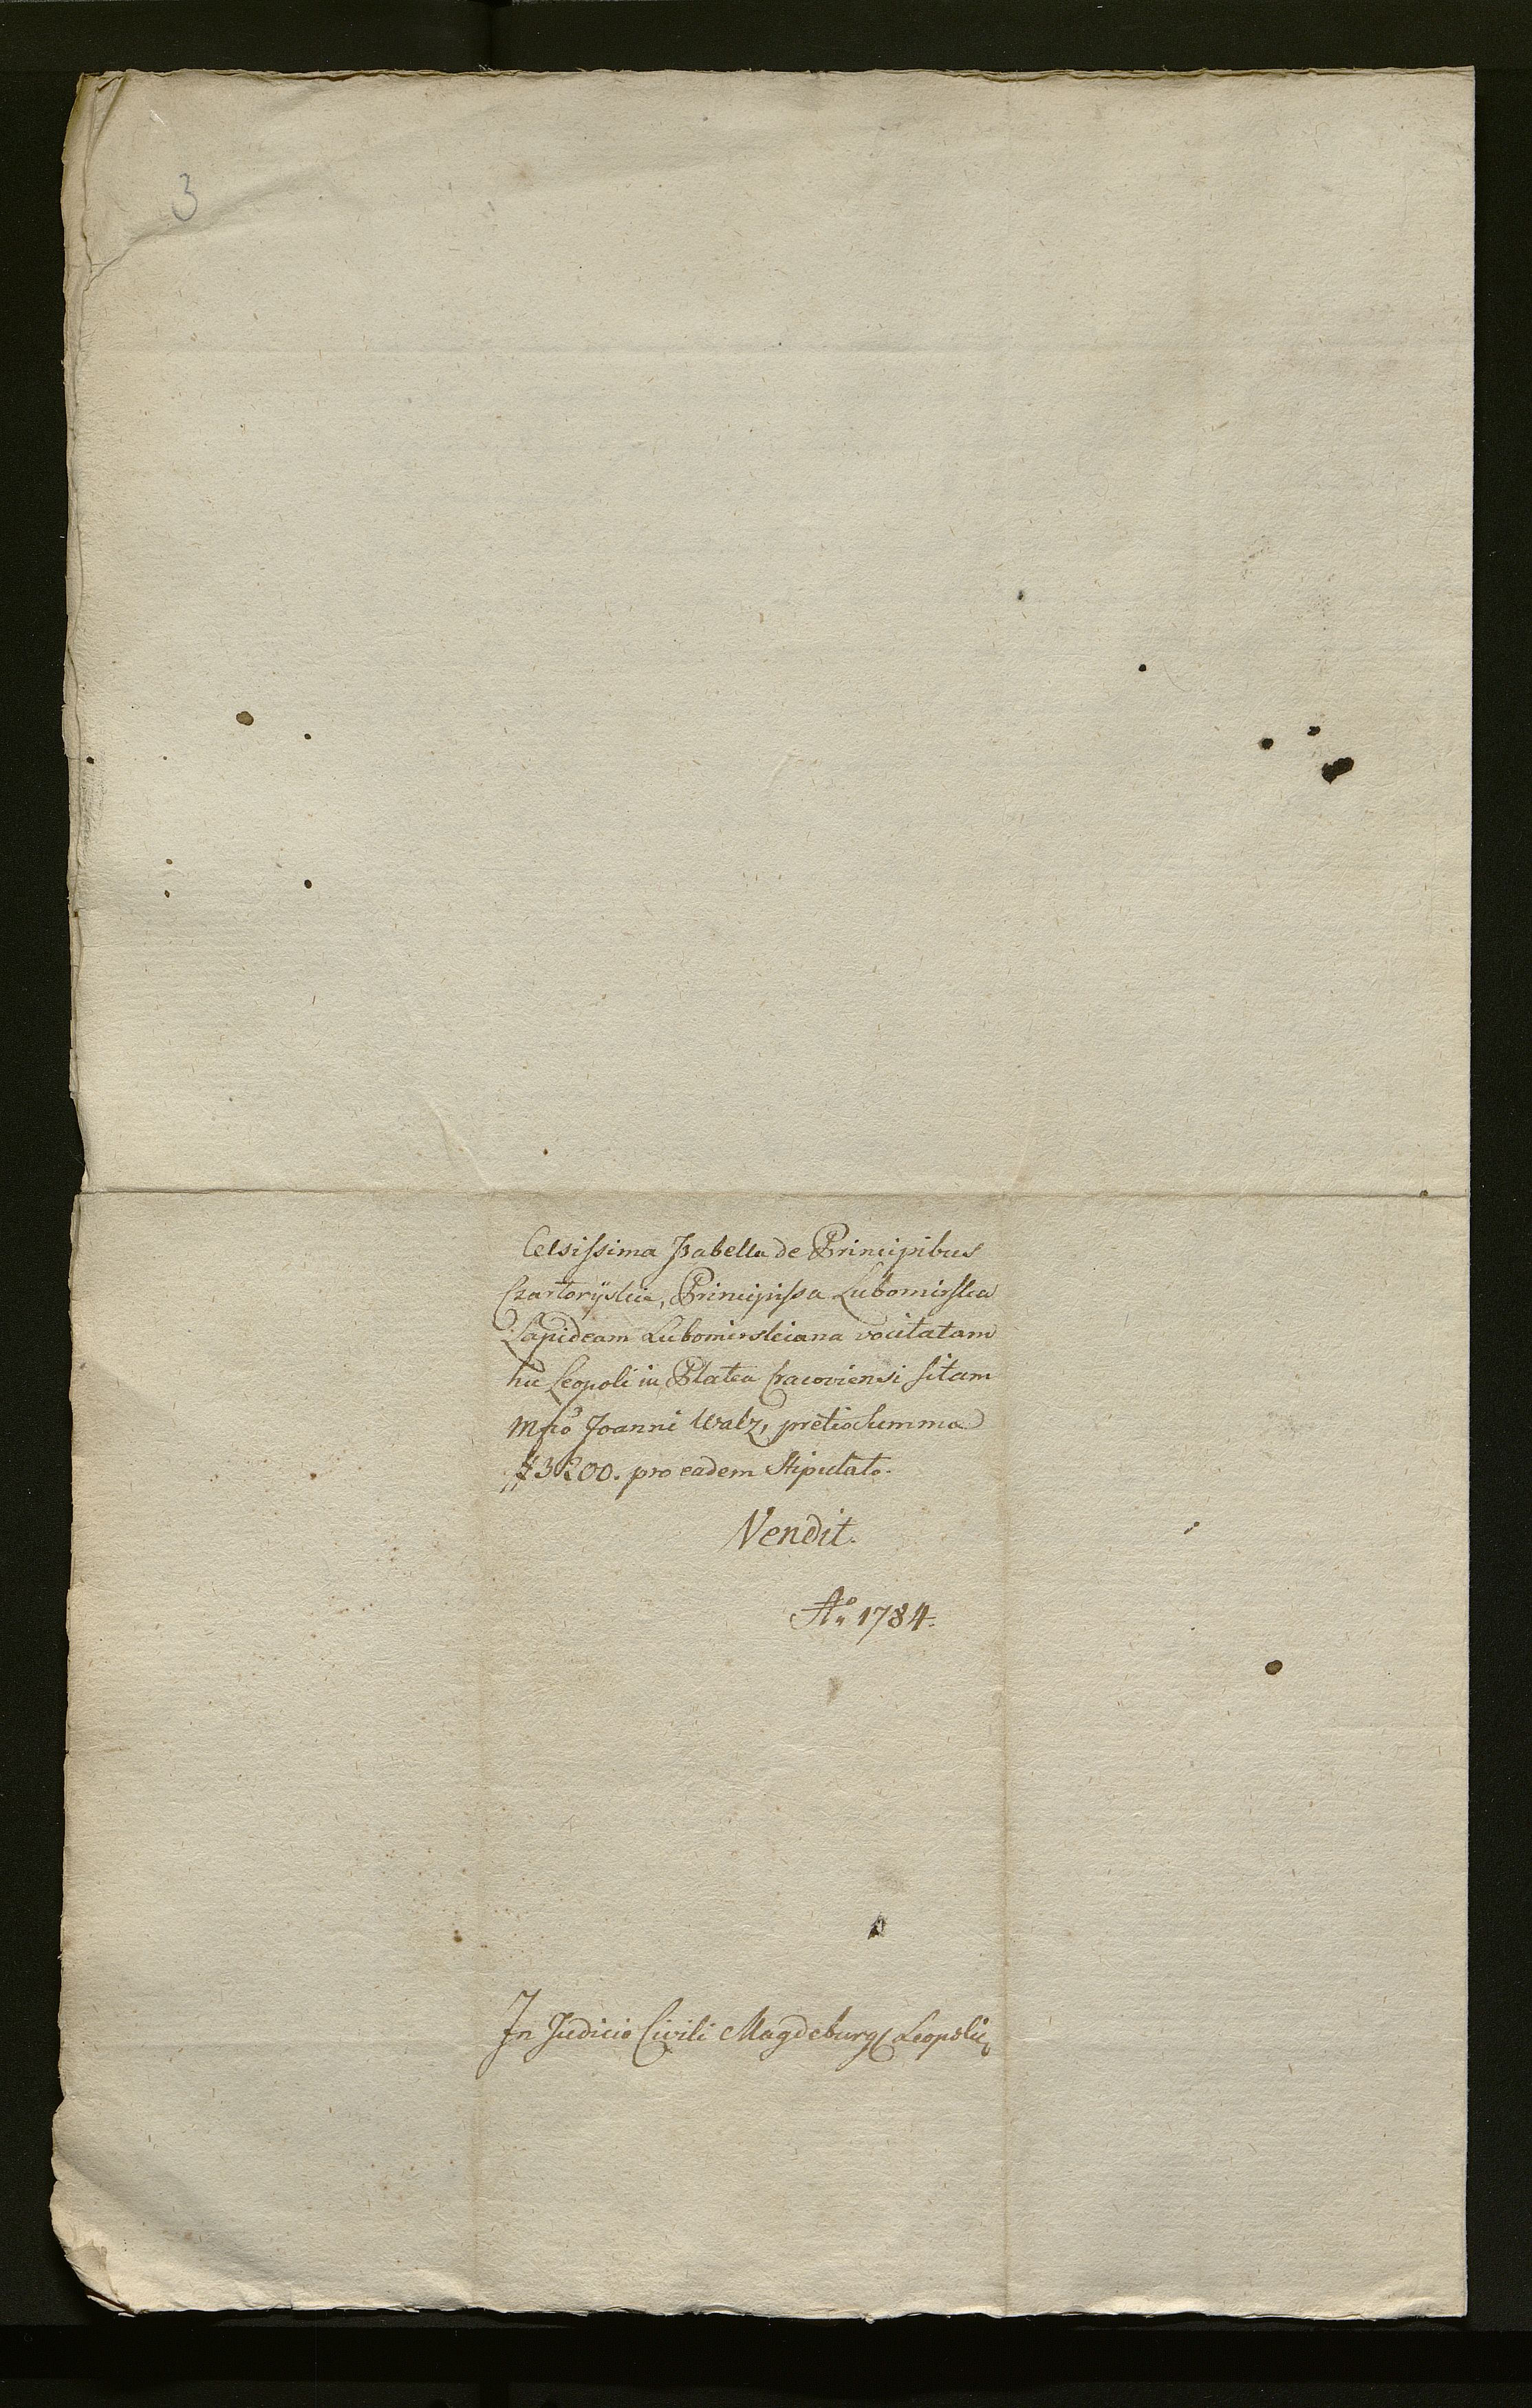 3
Celsissima Isabella de Principibus
Czartoryskie, Principissa Lubomirska
Lapideam Lubomirskiana vocitatam
hic Leopoli in Platea Cracoviensi sitam
Joanni Walz, pretio summa
pro eadem Stipulato.
Vendit.
Ao 1784.
In Judicio Civili Magdeburg Leopoli